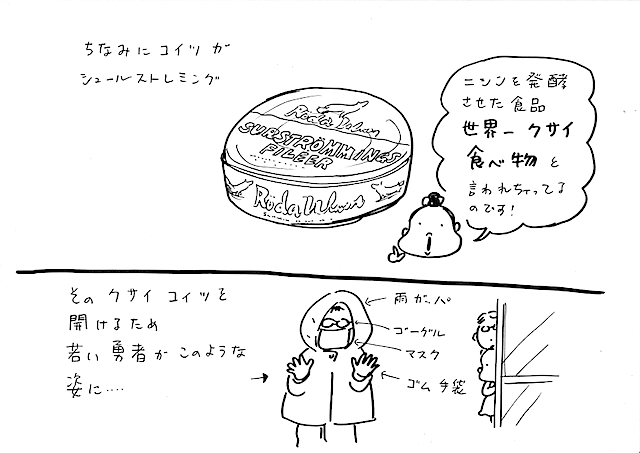 ちなみにコイツが
シュールストレミング
Röda Ulven
SURSTRÖMMINGS
FILEER
Röda Ulven
ニシンを発酵
させた食品
世界一クサイ
食べ物と
言われちゃってる
のです!
そのクサイコイツを
開けるため
若い勇者がこのような
姿に‥‥
雨ガッパ
ゴーグル
マスク
ゴム手袋